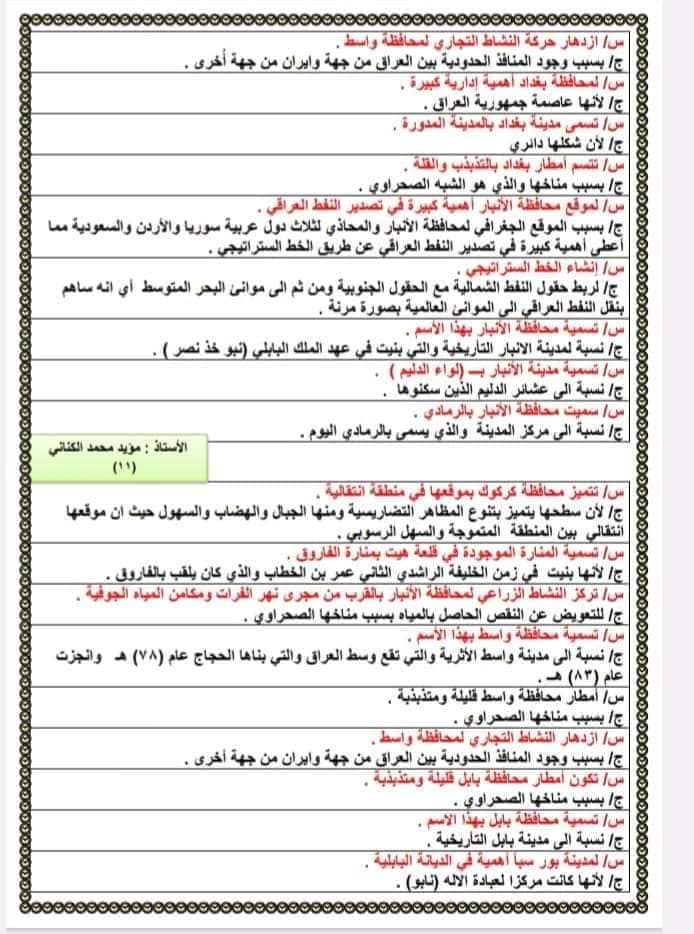 س/ ازدهار حركة النشاط التجاري لمحافظة واسط .
ج/ بسبب وجود المنافذ الحدودية بين العراق من جهة وايران من جهة أُخرى .
س/ لمحافظة بغداد أهمية إدارية كبيرة .
ج/ لأنها عاصمة جمهورية العراق .
س/ تسمى مدينة بغداد بالمدينة المدورة .
ج/ لأن شكلها دائري
س/ تتسم أمطار بغداد بالتذبذب والقلة .
ج/ بسبب مناخها والذي هو الشبه الصحراوي .
س/ لموقع محافظة الأنبار أهمية كبيرة في تصدير النفط العراقي .
ج/ بسبب الموقع الجغرافي لمحافظة الأنبار والمحاذي لثلاث دول عربية سوريا والأردن والسعودية مما
أعطى أهمية كبيرة في تصدير النفط العراقي عن طريق الخط الستراتيجي .
س/ إنشاء الخط الستراتيجي .
ج/ لربط حقول النفط الشمالية مع الحقول الجنوبية ومن ثم الى موانئ البحر المتوسط أي انه ساهم
بنقل النفط العراقي الى الموانئ العالمية بصورة مرنة .
س/ تسمية محافظة الأنبار بهذا الأسم .
ج/ نسبة لمدينة الانبار التأريخية والتي بنيت في عهد الملك البابلي (نبو خذ نصر ) .
س/ تسمية مدينة الأنبار بــ (لواء الدليم ) .
ج/ نسبة الى عشائر الدليم الذين سكنوها .
س/ سميت محافظة الأنبار بالرمادي .
ج/ نسبة الى مركز المدينة والذي يسمى بالرمادي اليوم .
الأستاذ : مؤيد محمد الكناني
(١١)
س/ تتميز محافظة كركوك بموقعها في منطقة انتقالية .
ج/ لأن سطحها يتميز بتنوع المظاهر التضاريسية ومنها الجبال والهضاب والسهول حيث ان موقعها
انتقالي بين المنطقة المتموجة والسهل الرسوبي .
س/ تسمية المنارة الموجودة في قلعة هيت بمنارة الفاروق .
ج/ لأنها بنيت في زمن الخليفة الراشدي الثاني عمر بن الخطاب والذي كان يلقب بالفاروق .
س/ تركز النشاط الزراعي لمحافظة الأنبار بالقرب من مجرى نهر الفرات ومكامن المياه الجوفية .
ج/ للتعويض عن النقص الحاصل بالمياه بسبب مناخها الصحراوي .
س/ تسمية محافظة واسط بهذا الأسم .
ج/ نسبة الى مدينة واسط الأثرية والتي تقع وسط العراق والتي بناها الحجاج عام (٧٨) هـ وانجزت
عام (٨٣) هـ .
س/ أمطار محافظة واسط قليلة ومتذبذبة .
ج/ بسبب مناخها الصحراوي .
س/ ازدهار النشاط التجاري لمحافظة واسط .
ج/ بسبب وجود المنافذ الحدودية بين العراق من جهة وايران من جهة أخرى .
س/ تكون أمطار محافظة بابل قليلة ومتذبذبة .
ج/ بسبب مناخها الصحراوي .
س/ تسمية محافظة بابل بهذا الاسم .
ج/ نسبة الى مدينة بابل التأريخية .
س/ لمدينة بور سبأ أهمية في الديانة البابلية .
ج/ لأنها كانت مركزا لعبادة الاله (نابو) .